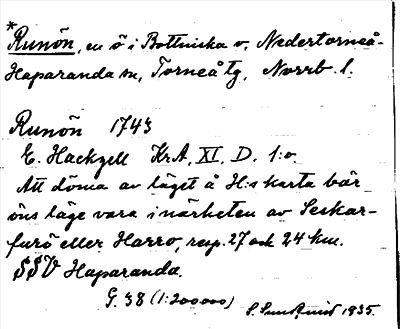 *
Runön, en ö i Bottniska v., Nedertorneå-
Haparanda sn, Torneå tg, Norrb. l.
Runön 1743
E. Hackzell KrA, XI, D. 1:o.
Att döma av läget å H:s karta bär
öns läge vara i närheten av Seskar-
furö eller Harro, resp. 27 och 24 km.
SSV Haparanda.
G. 38 (1:200000)
S. 1935.